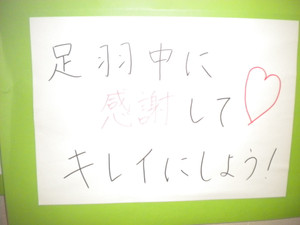 足羽中に
感謝して♡
キレイにしよう!